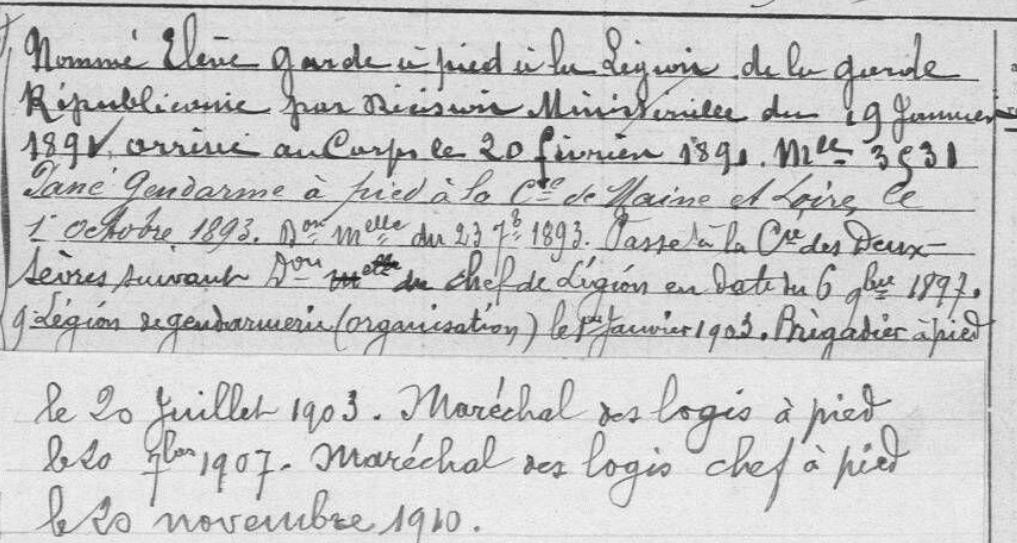 Nommé Elève garde à pied à la Légion de la garde
Républicaine par Décision Ministérielle du 19 Janvier
1891, arrivé au Corps le 20 février 1891. Mle 3531
Passé Gendarme à pied à la Cie de Maine et Loire, le
1r Octobre 1893. Don Melle du 23 7b 1893. Passé à la Cie des Deux-
Sèvres suivant Don melle du chef de Légion en date du 6 9bre 1897.
9e Légion de gendarmerie (organisation) le 1er Janvier 1903. Brigadier à pied
le 20 Juillet 1903. Maréchal des logis à pied
le 20 7bre 1907. Maréchal des logis chef à pied
le 20 novembre 1910.